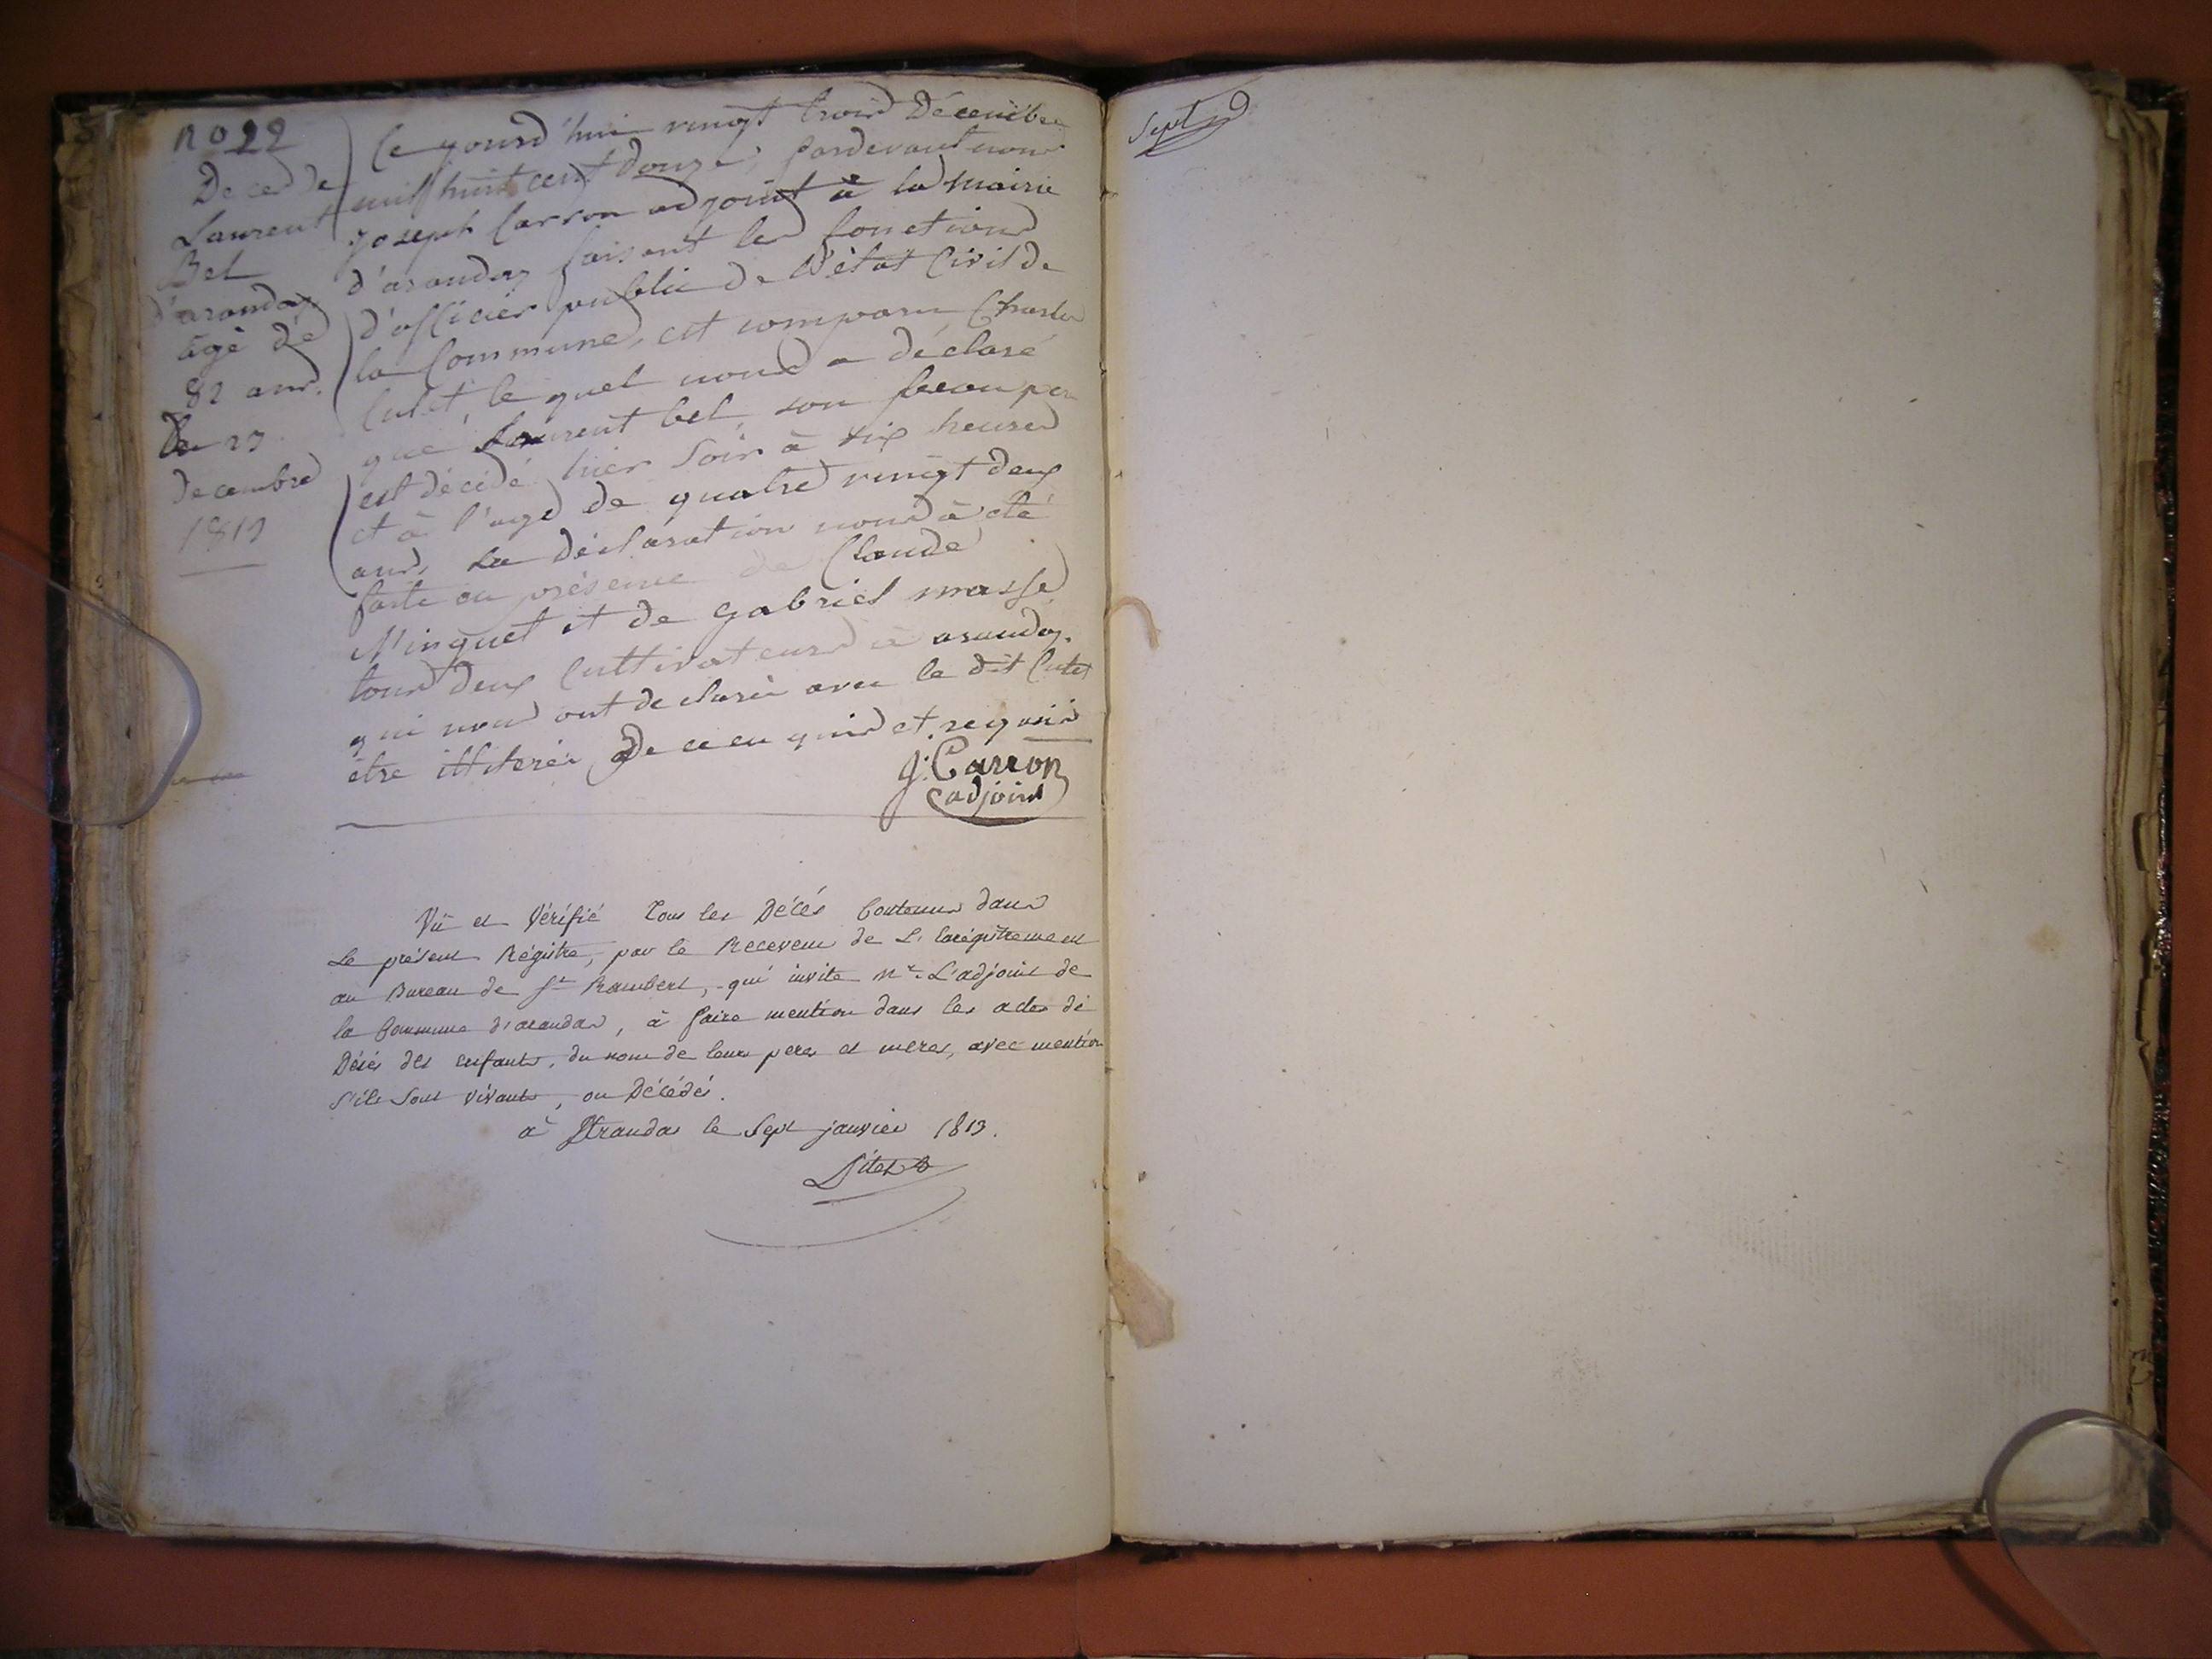 no 22
Deced de
Laurent
Bel
d'arandas
agé de
82 ans.
Le 23
Decembre
181
Ce yourd'hui vingt trois Décembre
mil huit cent douze, pardevant nous
joseph Carron adjoint à la mairie
d'arandas faisant les fonctions
d'officier public de l'état Civil de
la Commune, est comparu Charles
Cutet, le quel nous a déclaré
que Laurent bel, son
est décédé hier soir à six heures
et à l'age de quatre vingt deux
ans, La déclaration nous à été
faite en présence de Claude
Minguet et de gabriel masse
tous deux Cultivateurs à arandas.
qui nous ont declaré avec le dit Cutet
être illiterés De ce enquis et requis
J: Carron
adjoint
Vû et Vérifié tous les Décés Contenus dans
Le présent Régistre, par le Receveur de L'enrégistrement
au Bureau de St Rambert, qui invite Mr. L'adjoint de
la Commune d'arandas, à faire mention dans les actes de
Décés des enfants, du nom de leurs peres et meres, avec mention
s'ils sont vivants, ou Décédés.
à Arandas le Sept janvier 1813.
Sept